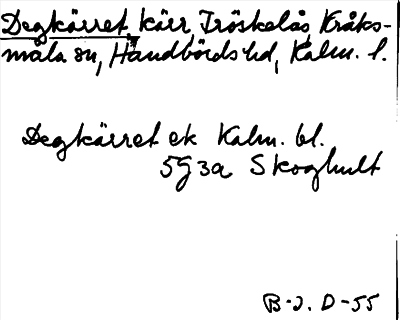 Degkärret, kärr, Tröskelås, Kråks-
måla sn, Handbörds hd, Kalm. l.
Degkärret ek Kalm. bl.
5G3a Skoghult
B-J. D-55